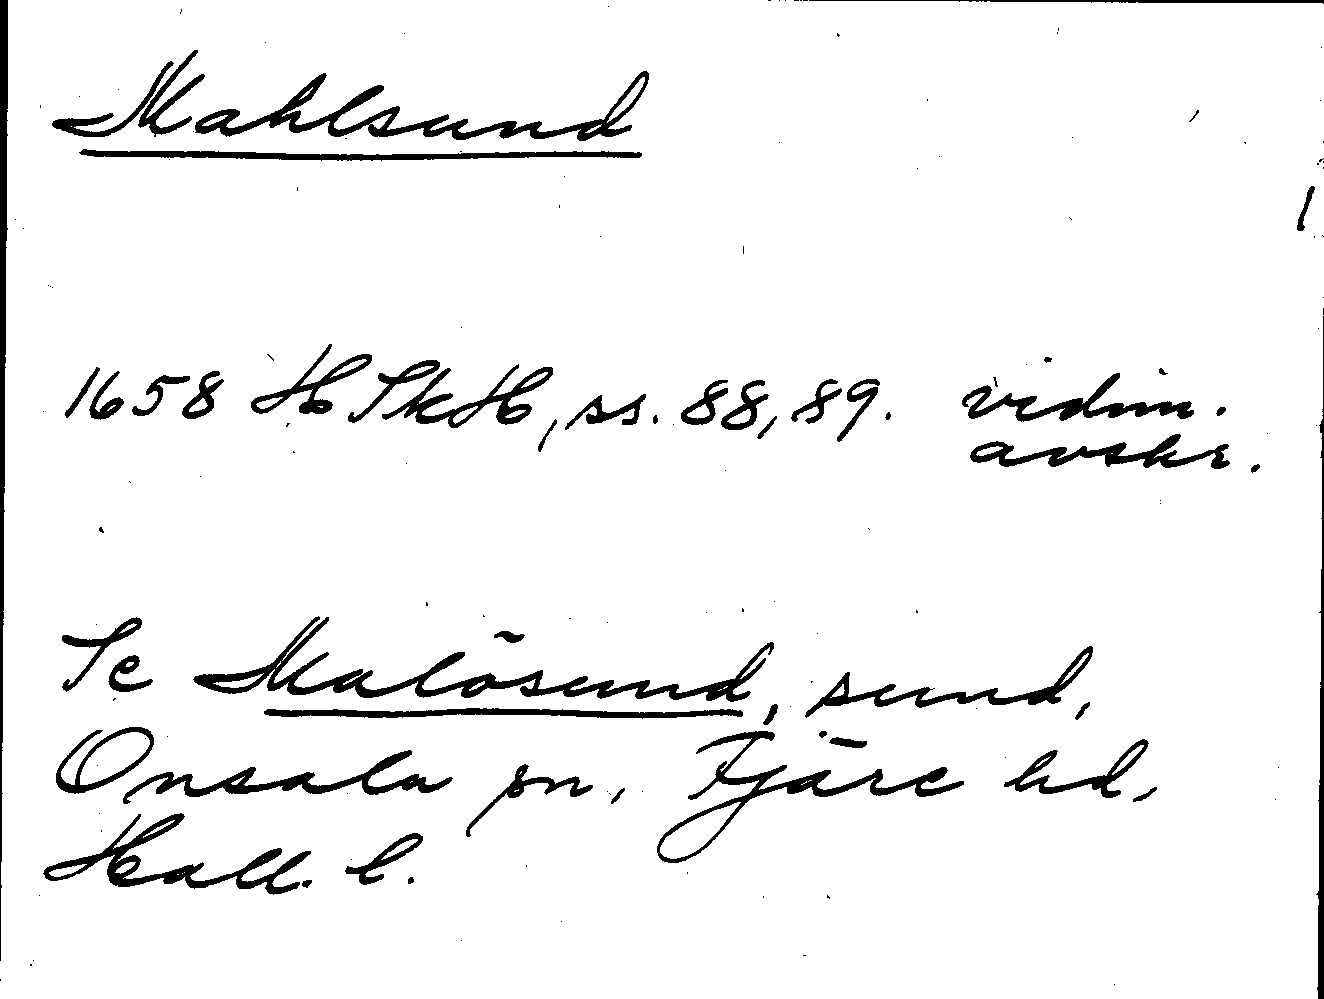 Mahlsund
1
1658 HSkH, ss. 88, 89. vidim.
avskr.
Se Malösund, sund,
Onsala sn, Fjäre hd,
Hall. l.